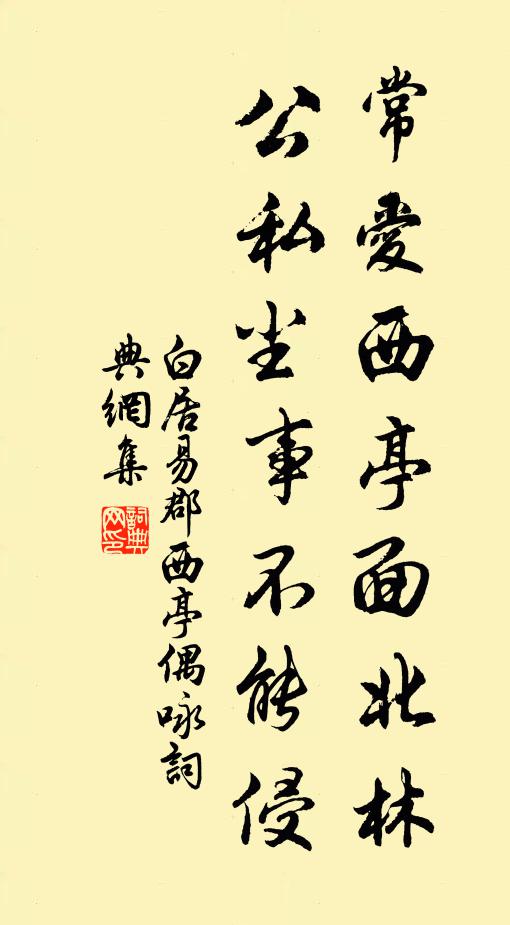 常愛西亭面北林
公私尘事不能侵
白居易郡西亭偶咏詞
典網集
詞典
网印